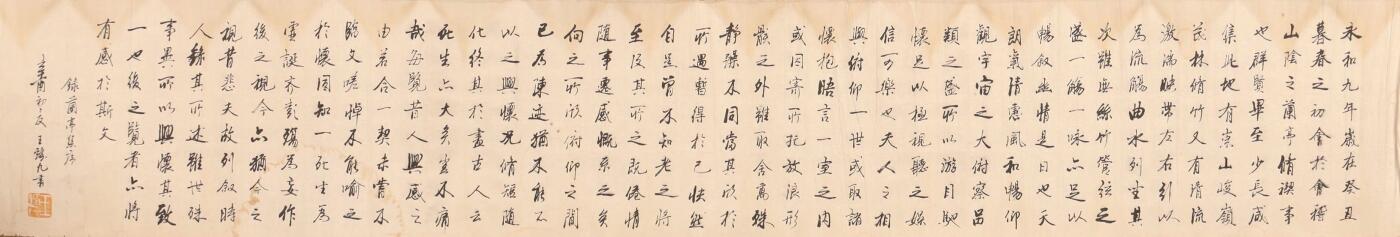 永和九年歲在癸丑
暮春之初會於會稽
山陰之蘭亭脩禊事
也群賢畢至少長咸
集此地有崇山峻嶺
茂林脩竹又有清流
激湍暎帶左右引以
為流觴曲水列坐其
次雖無絲竹管弦之
盛一觴一詠亦足以
暢敘幽情是日也天
朗氣清惠風和暢仰
觀宇宙之大俯察品
類之盛所以游目騁
懷足以極視聽之娛
信可樂也夫人之相
與俯仰一世或取諸
懷抱晤言一室之內
或因寄所托放浪形
骸之外雖取舍萬殊
靜躁不同當其欣於
所遇暫得於己快然
自足曾不知老之將
至及其所之既倦情
隨事遷感慨系之矣
向之所欣俯仰之間
已為陳迹猶不能不
以之興懷況脩短隨
化終其於盡古人云
死生亦大矣豈不痛
哉每覽昔人興感之
由若合一契未嘗不
臨文嗟悼不能喻之
於懷固知一死生為
虛誕齊彭殤為妄作
後之視今亦猶今之
視昔悲夫故列敘時
人錄其所述雖世殊
事異所以興懷其致
一也後之覽者亦將
有感於斯文
錄蘭亭集序
辛酉初夏